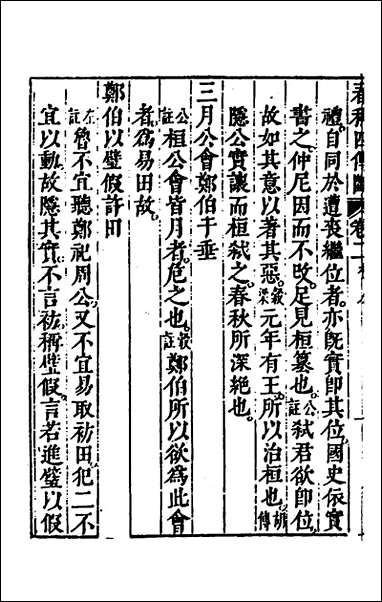 春秋四傳
卷二
禮自同於遭喪繼位者亦旣實即其位國史依實
書之仲尼因而不改足見桓簒也公註弒君欲即位
故如其意以著其惡穀梁元年有王所以治桓也胡傳
隱公實讓而桓弒之春秋所深絶也
三月公會鄭伯于垂
公註桓公會皆月者危之也穀註鄭伯所以欲為此會
者為易田故
鄭伯以璧假許田
左註魯不宜聽鄭祀周公又不宜易取祊田犯二不
宜以動故隱其實不言祊稱璧假言若進璧以假